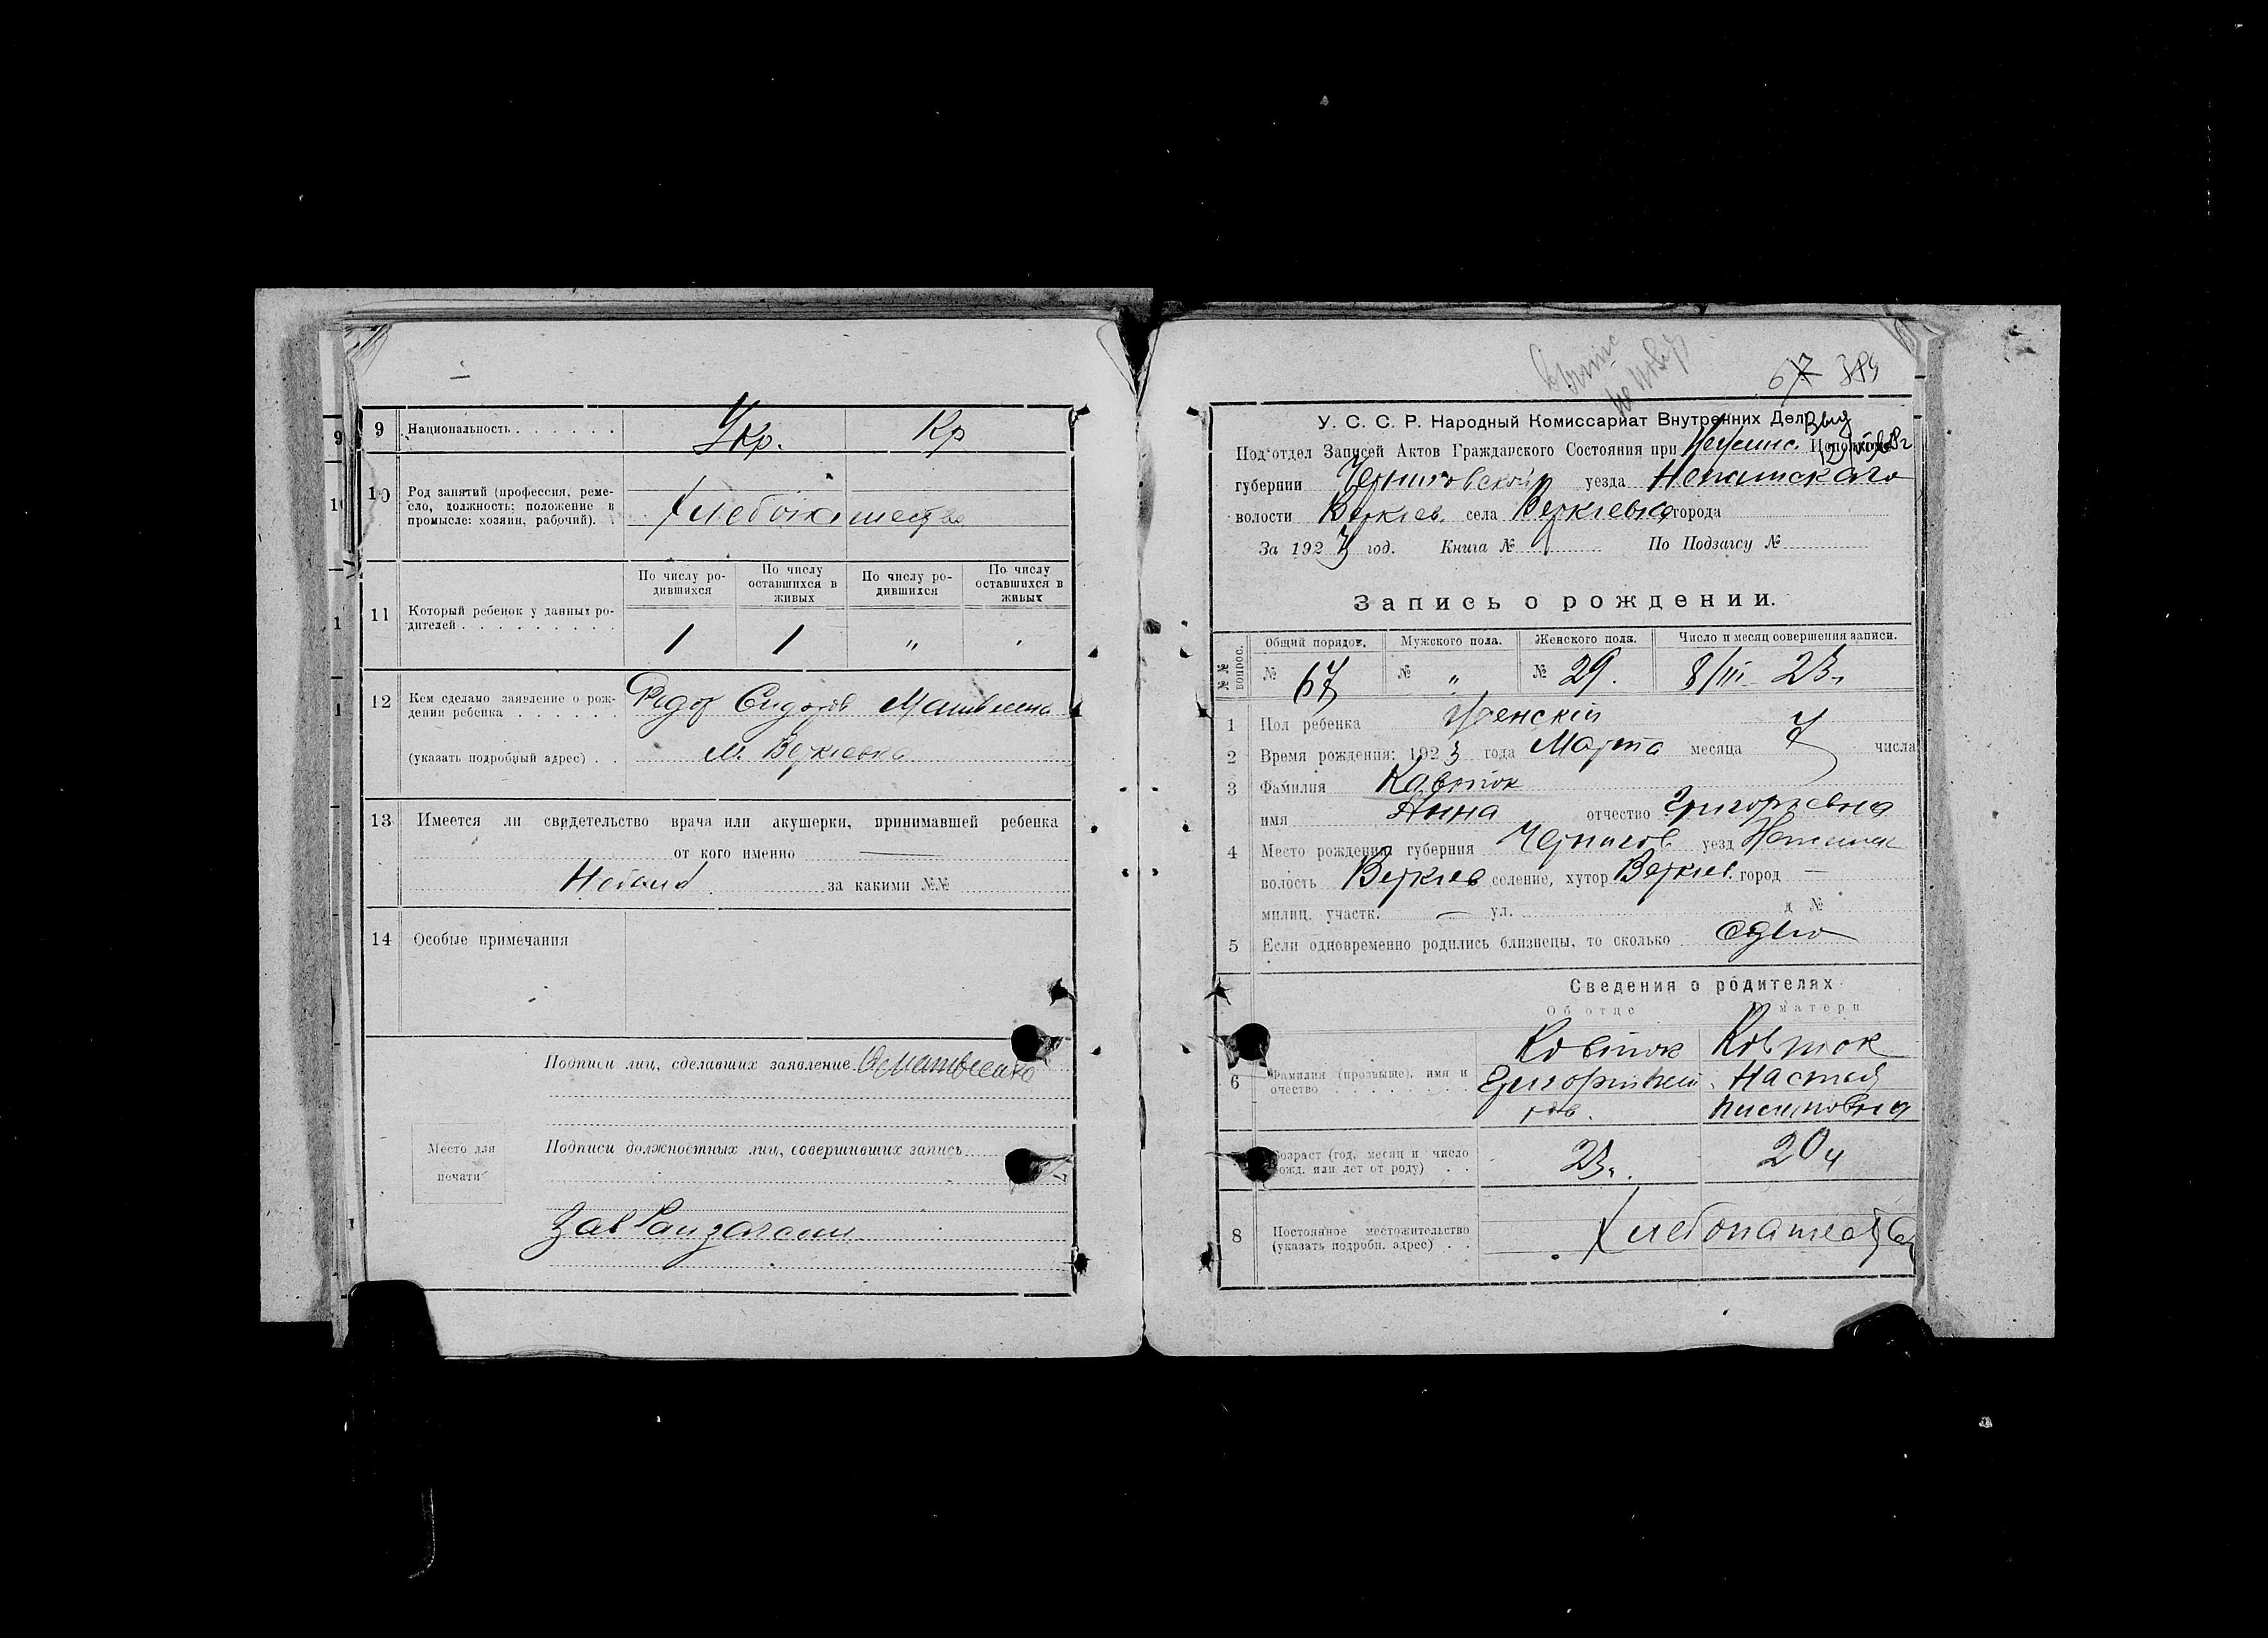 9 Национальность . . . . . . Укр. Кр
10 Род занятий (профессия, реме-
сло, должность; положение в
промысле: хозяин, рабочий).
11 Который ребенок у данных ро-
дителей . . . . . . . . .
По числу ро-
дившихся
По числу
оставшихся в
живых
По числу ро-
дившихся
По числу
оставшихся в
живых
1 1 "
12 Кем сделано заявление о рож-
дении ребенка . . . . . . Сидоров
(указать подробный адрес) . . м. Веркиевка
13 Имеется ли свидетельство врача или акушерки, принимавшей ребенка
от кого именно —
за какими №№
14 Особые примечания
Подписи лиц, сделавших заявление
Место для
печати
Подписи должностных лиц, совершивших запись
67 389
У. С. С. Р. Народный Комиссариат Внутренних Дел
Под‘отдел Записей Актов Гражданского Состояния при
губернии Черниговской уезда Нежинскаго
волости Веркиев. села Веркиевка города
За 1923 год. Книга № По Подзагсу №
Запись о рождении.
№№ вопрос.
Общий порядов. Мужского пола. Женского пола. Число и месяц совершения записи.
№ 67 № " № 29. 8/III 23г
1 Пол ребенка Женский
2 Время рождения: 1923 года Марта месяца 7 числа
3 Фамилия Кавтюк
имя Анна отчество Григорьевна
4 Место рождения губерния Чернигов уезд
волость Веркиев селение, хутор Веркиев. город —
милиц. участк. — ул. д №
5 Если одновременно родились близнецы, то сколько одно
Сведения о родителях
Об отце О матери
6 Фамилия (прозвыще), имя и
очество . . . . . . .
Ковтюк Ковтюк
Настия
Возраст (год, месяц и число
рожд. или лет от роду) . . 23г. 20
8 Постоянное местожительство
(указать подробн. адрес) . . Хлебопашество